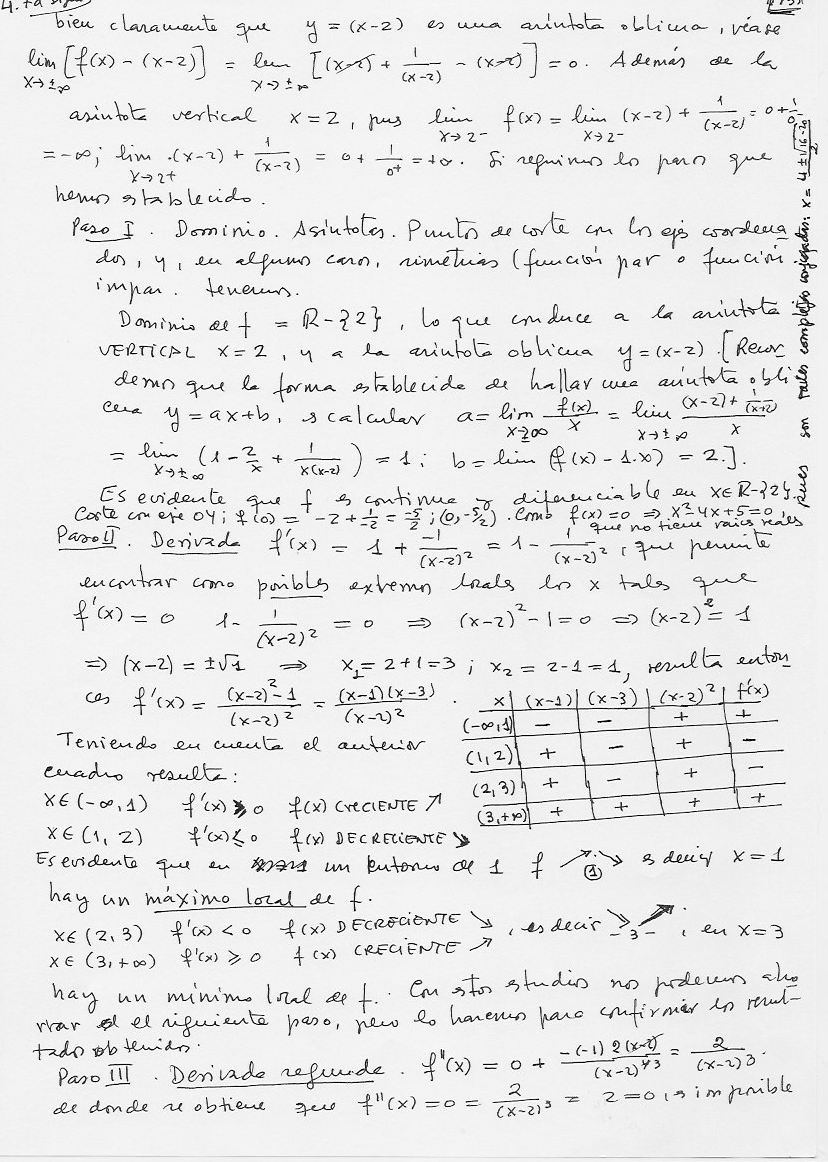 bien claramente que y = (x-2) es una asíntota oblicua, véase
lim x→±∞ [f(x) - (x-2)] = lim x→±∞ [(x-2) + 1/(x-2) - (x-2)] = 0. Además de la
asíntota vertical x=2, pues lim x→2- f(x) = lim x→2- (x-2) + 1/(x-2) = 0 + 1/0-
= -∞; lim x→2+ (x-2) + 1/(x-2) = 0 + 1/0+ = +∞. Si seguimos los pasos que
hemos establecido.
Paso I. Dominio. Asíntotas. Puntos de corte con los ejes coordena
dos, y, en algunos casos, simetrías (función par o función
impar. tenemos.
Dominio de f = R-{2}, lo que conduce a la asíntota
VERTICAL x=2, y a la asíntota oblicua y=(x-2). [Recor
demos que la forma establecida de hallar una asíntota obli
cua y=ax+b, es calcular a = lim x→±∞ f(x)/x = lim x→±∞ ((x-2) + 1/(x-2))/x
= lim x→±∞ (1 - 2/x + 1/x(x-2)) = 1; b = lim (f(x) - 1·x) = 2.].
Es evidente que f es continua y diferenciable en x∈R-{2}.
Corte con eje OY; f(0) = -2 + 1/-2 = -5/2; (0, -5/2). Como f(x)=0 ⇒ x²-4x+5=0
que no tiene raíces reales
pues son raíces complejas conjugadas: x = 4±√16-20/2
Paso II. Derivada f'(x) = 1 + -1/(x-2)² = 1 - 1/(x-2)², que permite
encontrar como posibles extremos locales los x tales que
f'(x) = 0 1 - 1/(x-2)² = 0 ⇒ (x-2)² - 1 = 0 ⇒ (x-2)² = 1
⇒ (x-2) = ±√1 ⇒ x₁ = 2+1 = 3; x₂ = 2-1 = 1, resulta enton
ces f'(x) = (x-2)²-1/(x-2)² = (x-1)(x-3)/(x-2)².
x | (x-1) | (x-3) | (x-2)² | f'(x)
(-∞,1) | - | - | + | +
(1,2) | + | - | + | -
(2,3) | + | - | + | -
(3,+∞) | + | + | + | +
Teniendo en cuenta el anterior
cuadro resulta:
x∈(-∞,1) f'(x) ≥ 0 f(x) CRECIENTE ↗
x∈(1,2) f'(x) ≤ 0 f(x) DECRECIENTE ↘
Es evidente que en un entorno de 1 f ↗ ① ↘ es decir x=1
hay un máximo local de f.
x∈(2,3) f'(x) < 0 f(x) DECRECIENTE ↘, es decir ↘ -3- ↗, en x=3
x∈(3,+∞) f'(x) ≥ 0 f(x) CRECIENTE ↗
hay un mínimo local de f. Con estos estudios nos podemos aho
rrar el siguiente paso, pero lo haremos para confirmar los resul-
tados obtenidos.
Paso III. Derivada segunda. f''(x) = 0 + -(-1)2(x-2)/(x-2)⁴³ = 2/(x-2)3.
de donde se obtiene que f''(x) = 0 = 2/(x-2)³ = 2=0, es imposible